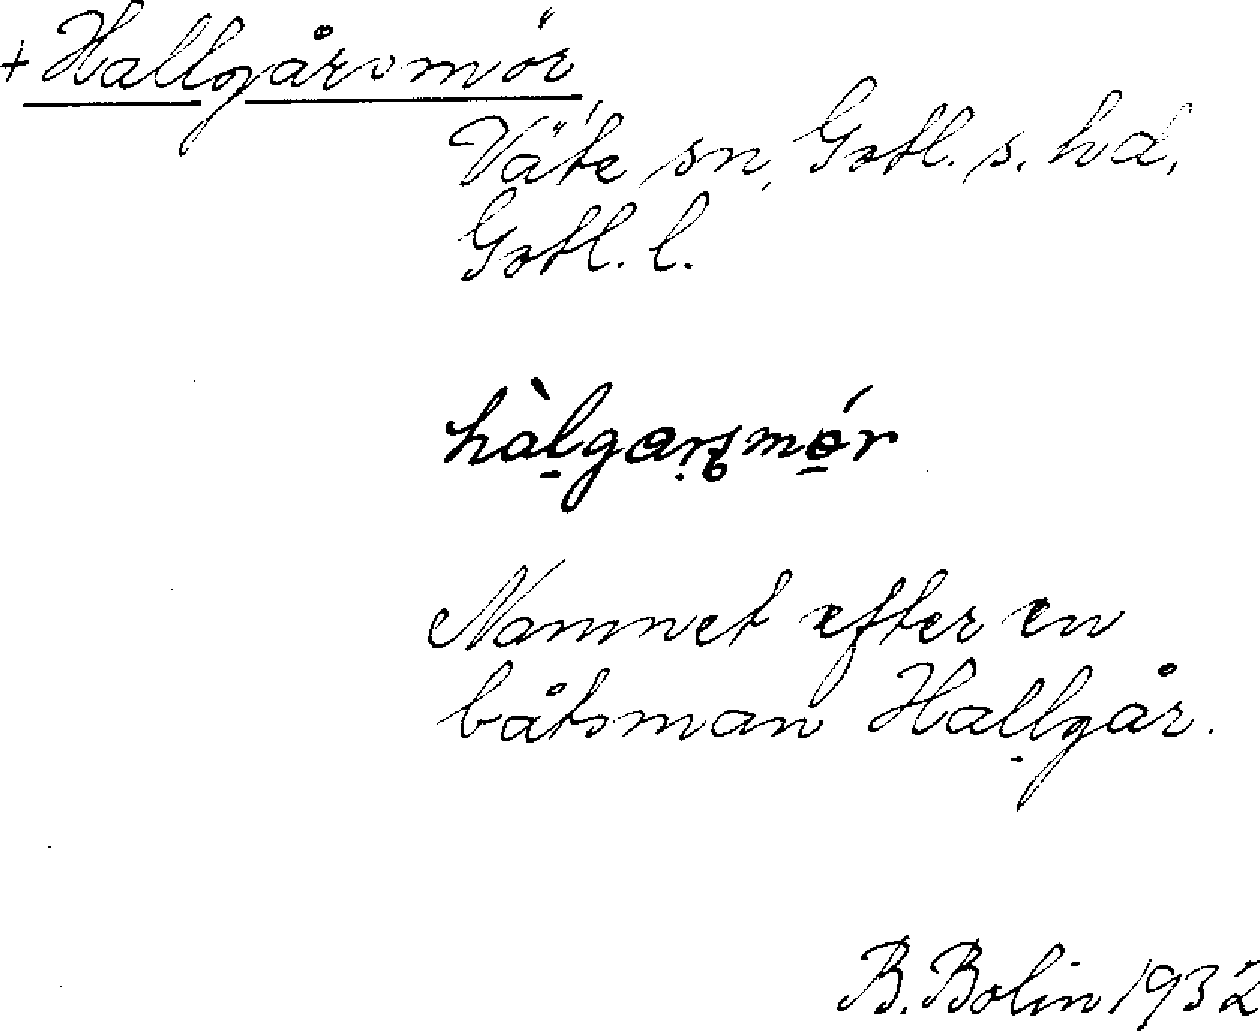 + Hallgårsmör
Väte sn, Gotl. s. hd,
Gotl. l.
Namnet efter en
båtsman Hallgår.
B. Bolin 1932